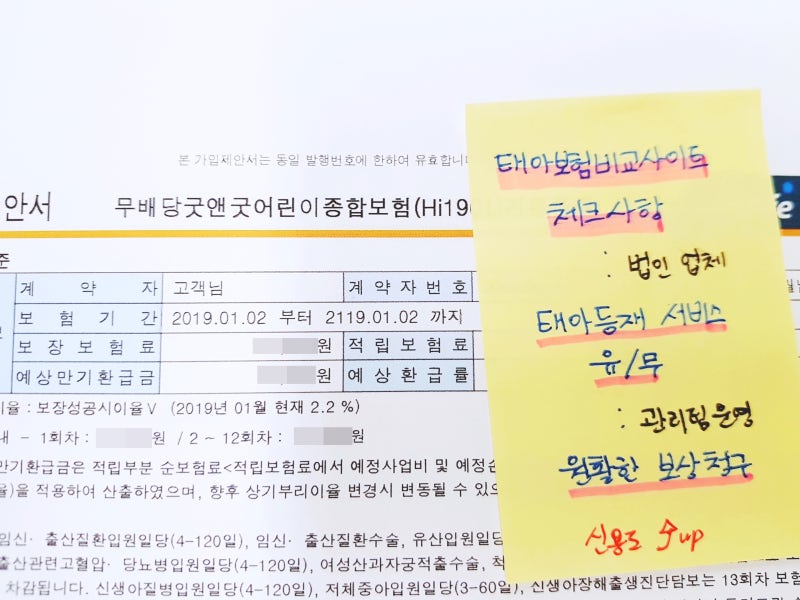 본 가입제안서는 동일 발행번호에 한하여 유효합니다
안서 무배당굿앤굿어린이종합보험(Hi190
준
계 약 자 고객님 계 약 자 번 호
보 험 기 간 2019.01.02 부터 2119.01.02 까지
보 장 보 험 료 원 적 립 보 험 료
예 상 만 기 환 급 금 원 예 상 환 급 률
이율 : 보장성공시이율Ⅴ (2019년 01월 현재 2.2 %)
내 - 1회차 : 원 / 2 ~ 12회차 : 원
만기환급금은 적립부분 순보험료<적립보험료에서 예정사업비 및 예정손
율)을 적용하여 산출하였으며, 향후 상기부리이율 변경시 변동될 수 있으
임신· 출산질환입원일당(4-120일), 임신· 출산질환수술, 유산입원일당
출산관련고혈압· 당뇨병입원일당(4-120일), 여성산과자궁적출수술, 척
차감됩니다. 신생아질병입원일당(4-120일), 저체중아입원일당(3-60일), 신생아장해출생진단담보는 13회차 보험
태아보험비교사이트
체크사항
: 법인 업체
태아등재 서비스
유/무
: 관리팀운영
원활한 보상청구
신용도 수up